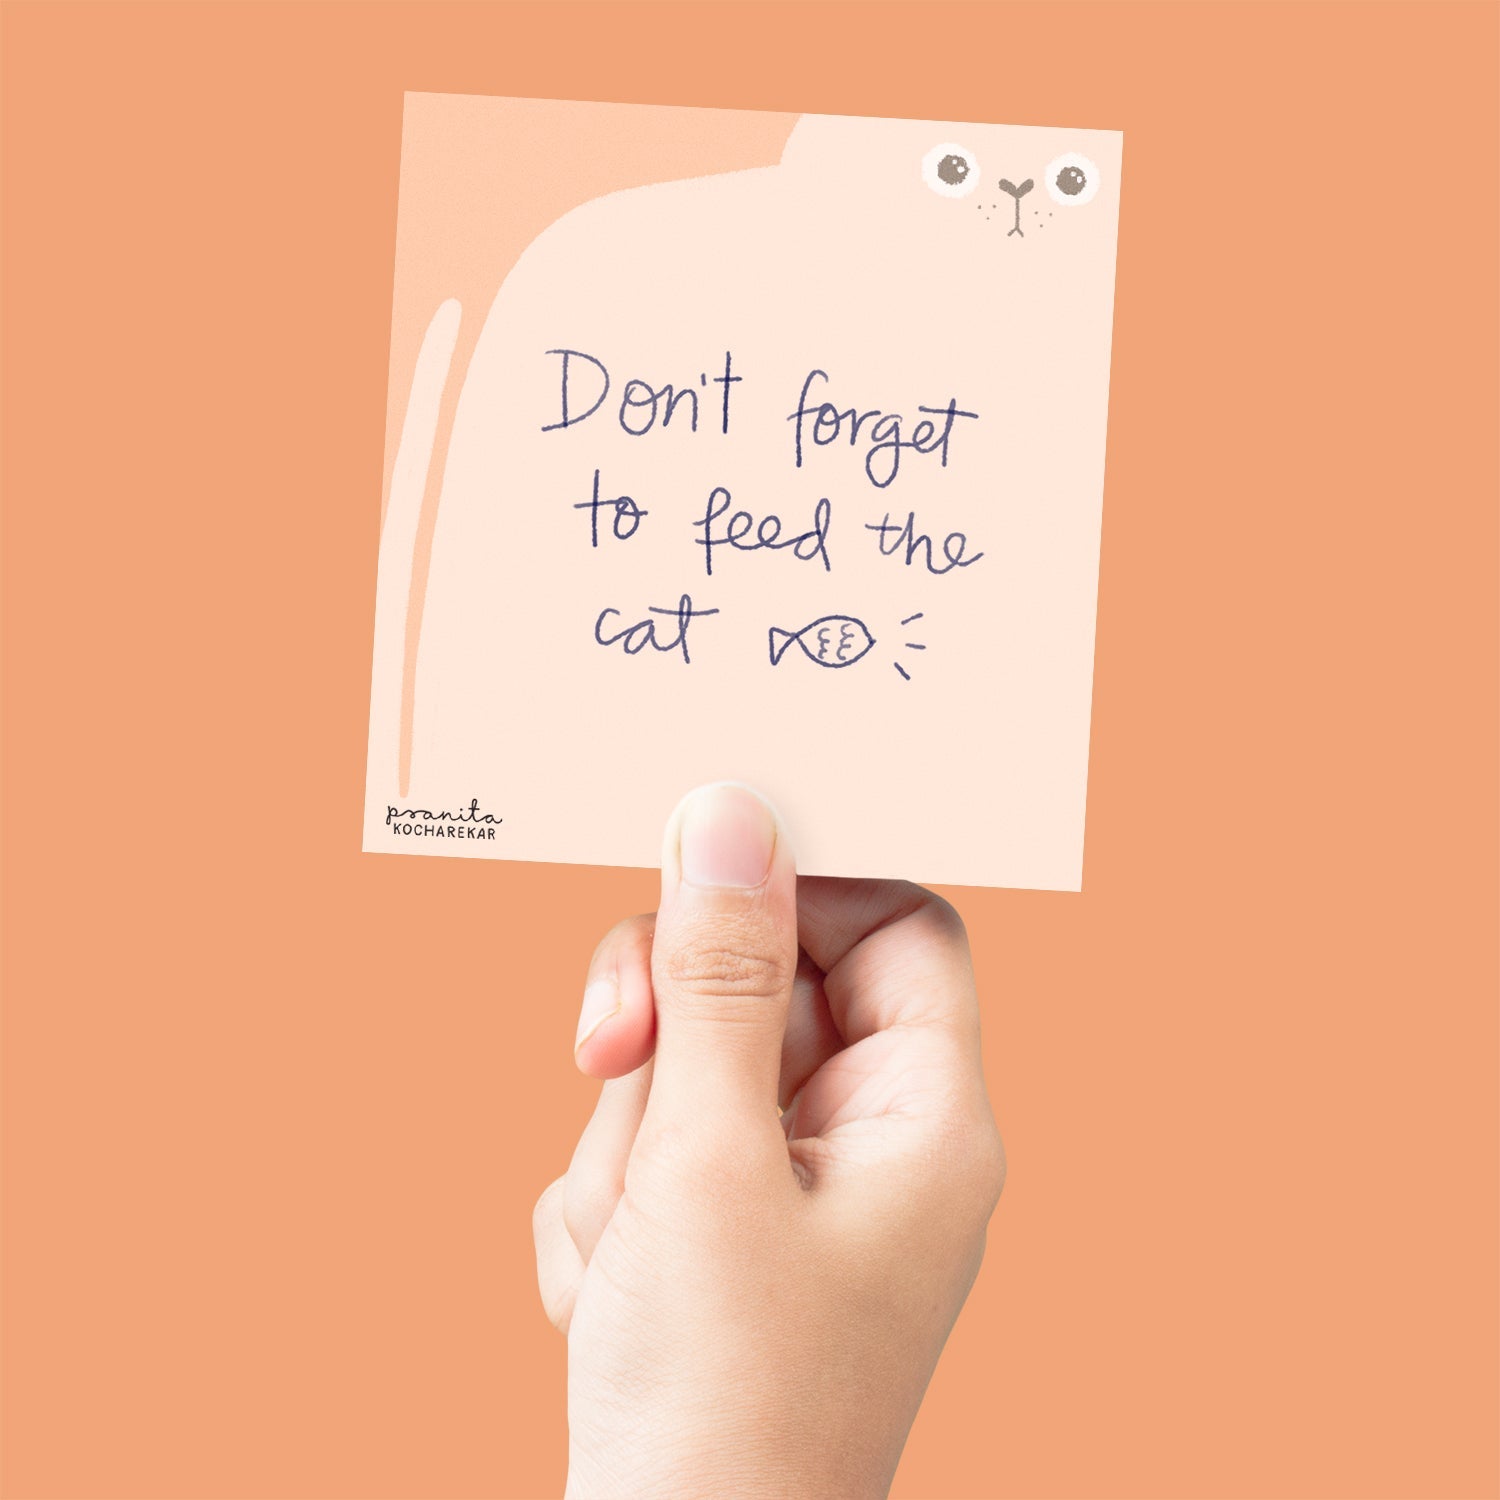 Don't forget
to feed the
cat
pranita
KOCHAREKAR